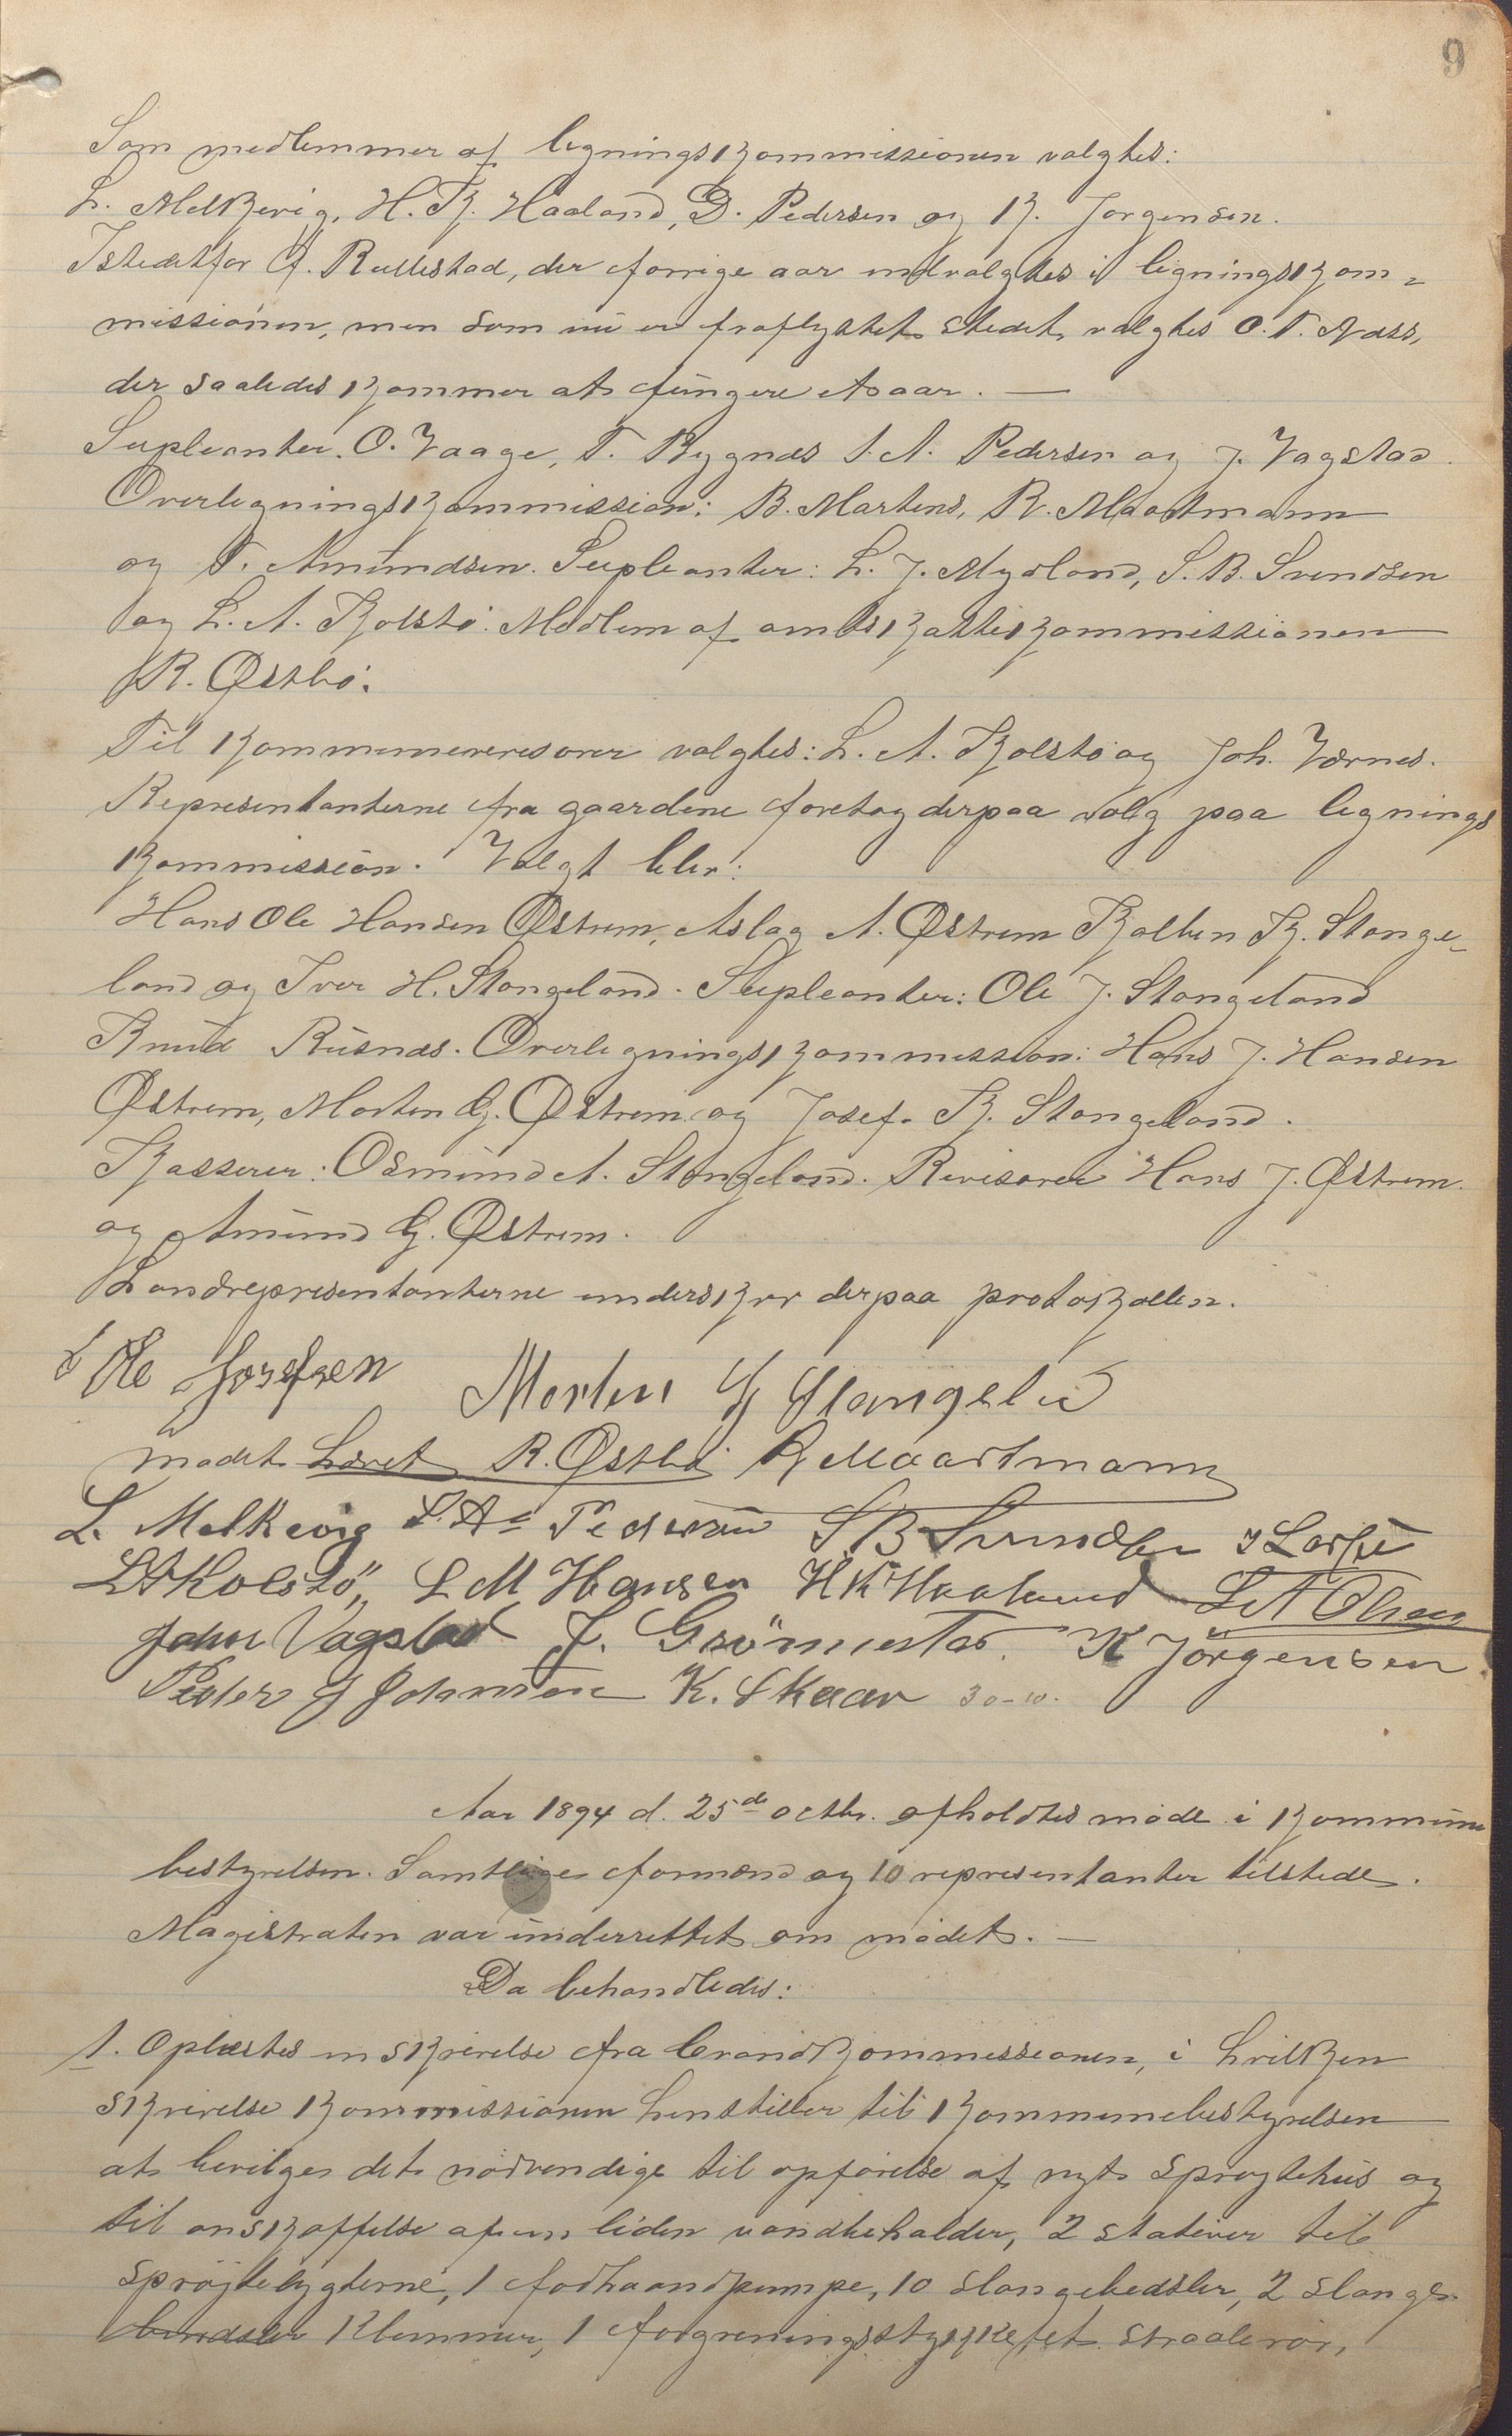 9
Som medlemmer af ligningskommissionen valgtes:
L. Melkevig, H. K. Haaland, D. Pedersen og K. Jørgensen.
Istedetfor A. Rullestad, der forrige aar indvalgtes i ligningskom-
missionen, men som nu er fraflyttet stedet, valgtes O. T. Næss,
der saaledes kommer at fungere et aar. —
Supleanter. O. Vaage, T. Bygnes S. A. Pedersen og J. Vagstad.
Overligningskommission: B. Martens, R. Maartmann
og T. Amundsen. Supleanter: L. J. Mydland, S. B. Svendsen
og L. A. Kolstø. Medlem af amtsskattekommissionen
R. Østbø.
Til kommunerevisorer valgtes: L. A. Kolstø og Joh. Værnes.
Representanterne fra gaardene foretog derpaa valg paa lignings
kommission. Valgt blev:
Hans Ole Hansen Østrem, Aslag A. Østrem Kolben K. Stange-
land og Iver H. Stangeland. Supleanter: Ole J. Stangeland
Knud Risnes. Overligningskommission: Hans J. Hansen
Østrem, Morten G. Østrem og Josef K. Stangeland.
Kasserer: Osmund A. Stangeland. Revisorer Hans J. Østrem.
og Amund G. Østrem.
Landrepresentanterne underskrev derpaa protokollen.
Ole Josefsen Morten G Stangeland
mødet hævet R. Østbø R Maartmann
L. Melkevig S. A. Pedersen S B Svendsen
L A Kolstö, L M Hansen H K Haaland L A Olsen
John Vagstad J. Grönnestad. K Jörgensen
Peder J Johannesen K. Skaar 30-10.
Aar 1894 d. 25de octbr. afholdtes møde i kommune
bestyrelsen. Samtlige formænd og 10 representanter tilstede.
Magistraten var underrettet om mødet. —
Da behandledes:
1. Oplæstes en skrivelse fra brandkommissionen, i hvilken
skrivelse kommissionen henstiller til kommunebestyrelsen
at bevilges det nødvendige til opførelse af nyt sprøjtehus og
til anskaffelse af en liden vandbeholder, 2 stativer til
sprøjtelygterne, 1 fodhaandpumpe, 10 slangebedsler, 2 slange-
bindsler klemmer, 1 forgreningsstykke, et straalerør,